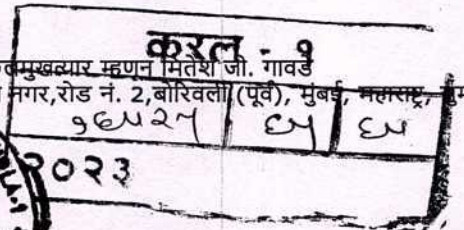 करल - १
कुलमुखत्यार म्हणून मितेश जी. गावडे
नगर,रोड नं. 2,बोरिवली (पूर्व), मुंबई, महाराष्ट्र,
१६५२५ ६५ ६५
२०२३